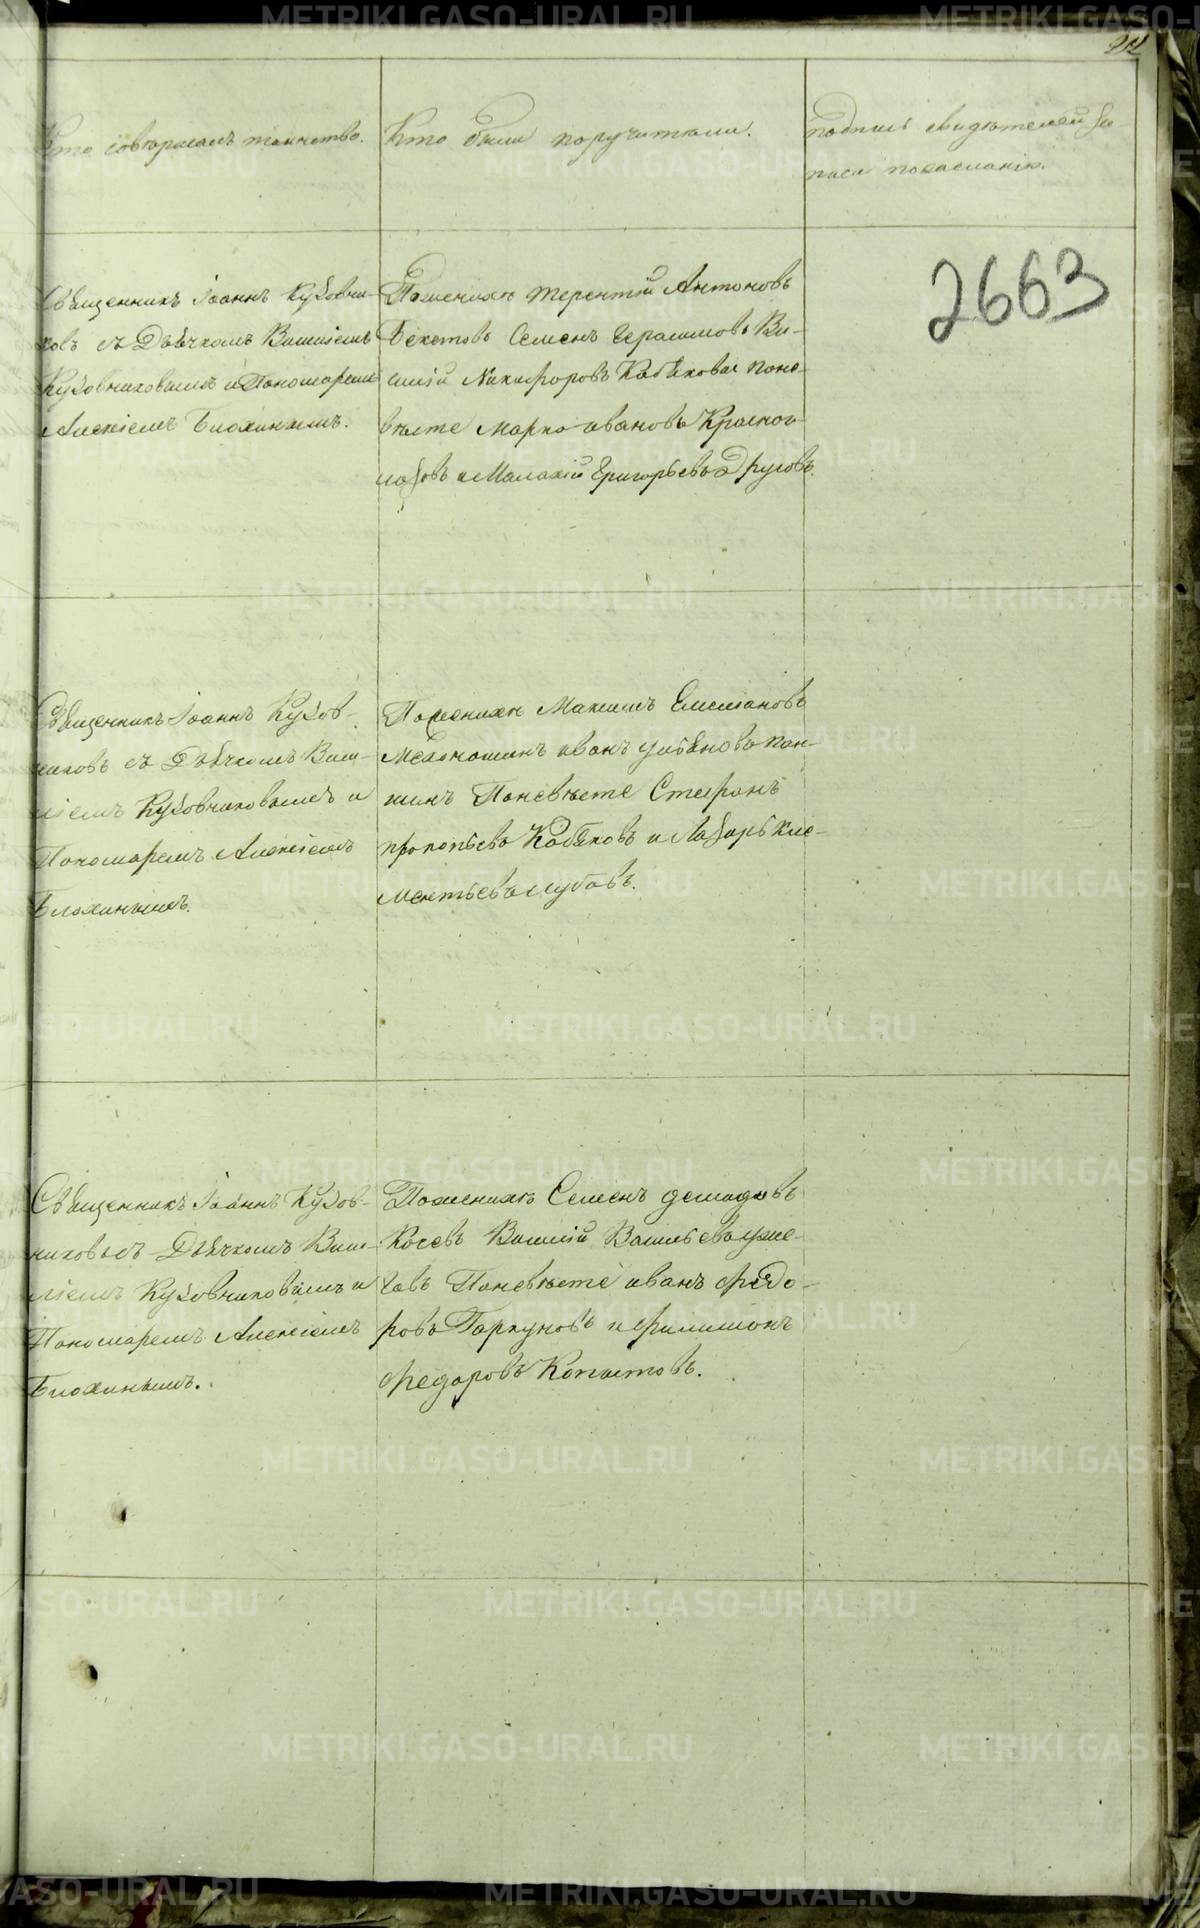 Кто совершалъ таинство.
Кто были поручители.
подпись свидѣтелей за-
писи по желанію.
2663
Священникъ Іоаннъ Кузовни-
ковъ съ Дьячкомъ Василіемъ
Кузовниковымъ и Пономаремъ
Алексіемъ Блохинымъ.
По женихѣ Терентій Антоновъ
Бекетовъ Семенъ Герасимовъ Ва-
силій Никифоровъ Кабаковы поне-
вѣсте Марко Ивановъ Красног-
лазовъ и Малахій Григорьевъ Друговъ.
Священникъ Іоаннъ Кузов-
никовъ съ Дьячкомъ Васи-
ліемъ Кузовниковымъ и
Пономаремъ Алексіемъ
Блохинымъ.
По женихѣ Максимъ Емельяновъ
Иванъ Ульяновъ Пан-
шинъ Поневѣсте Стефанъ
Прокопьевъ Кабаковъ и Лазарь Кле-
ментьевъ Лубовъ.
Священникъ Іоаннъ Кузов-
никовъ съ Дьячкомъ Васи-
ліемъ Кузовниковымъ и
Пономаремъ Алексіемъ
Блохинымъ.
По женихѣ Семенъ Демидовъ
Косевъ Василій Васильевъ Уже-
говъ Поневѣсте Иванъ Федо-
ровъ Горкуновъ и Филимонъ
Федоровъ Копытовъ.
METRIKI.GASO-URAL.RU